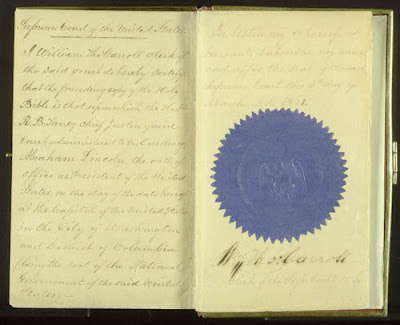 Supreme Court of the United States
I William Thos Carroll clerk of
the said court do hereby certify
that the preceding copy of the Holy
Bible is that upon which the Honl.
R. B. Taney Chief Justice of said
court administered to His Excellency
Abraham Lincoln, the oath of
office as President of the United
States, on the day of the date hereof
at the Capitol of the United States
in the City of Washington
and District of Columbia
being the seat of the National
Government of the said United
States.
In testimony whereof I
hereunto subscribe my name
and affix the seal of the said
Supreme Court this 4th day of
March 1861.
Wm Thos Carroll
Clerk of the Sup. Court U. S.